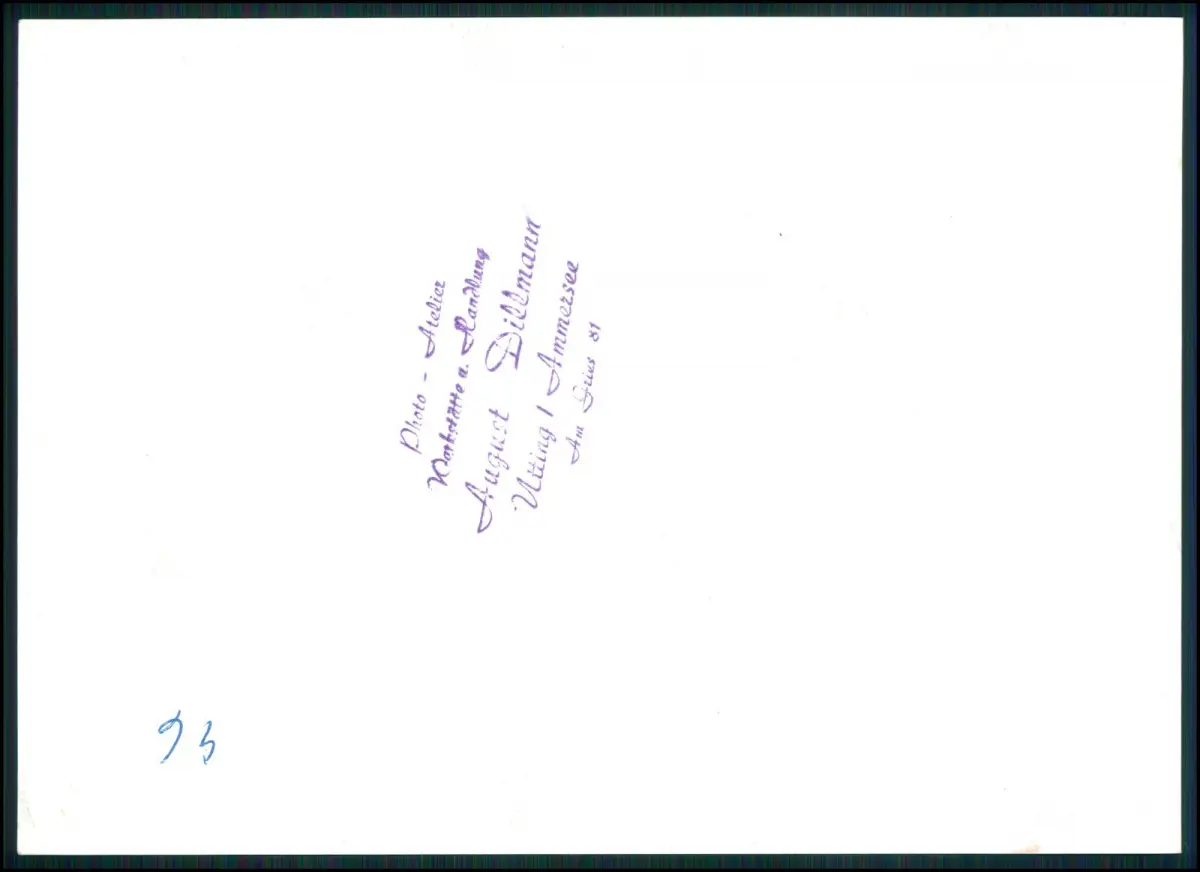 Photo - Atelier
Werkstätte u. Handlung
August Dillmann
Utting / Ammersee
Am Gries 81